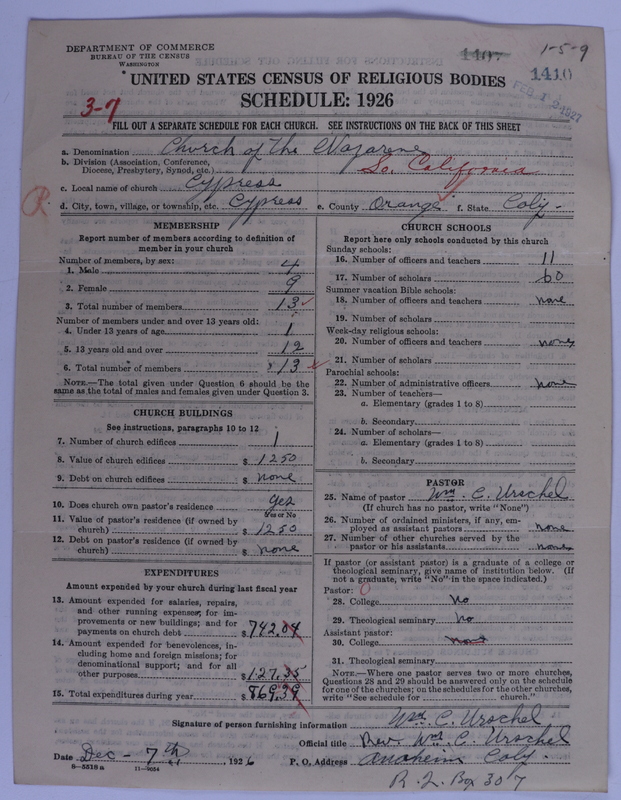 DEPARTMENT OF COMMERCE
BUREAU OF THE CENSUS
WASHINGTON
1407
1-5-9
1410
FEB 1 2 1927
UNITED STATES CENSUS OF RELIGIOUS BODIES
SCHEDULE: 1926
3-7
FILL OUT A SEPARATE SCHEDULE FOR EACH CHURCH. SEE INSTRUCTIONS ON THE BACK OF THIS SHEET
a. Denomination Church of the Nazarene
b. Division (Association, Conference, Diocese, Presbytery, Synod, etc.) So. California
c. Local name of church Cypress
d. City, town, village, or township, etc. Cypress e. County Orange f. State Calif.
MEMBERSHIP
Report number of members according to definition of
member in your church
Number of members, by sex:
1. Male 4
2. Female 9
3. Total number of members 13
Number of members under and over 13 years old:
4. Under 13 years of age 1
5. 13 years old and over 12
6. Total number of members 13
NOTE.—The total given under Question 6 should be the
same as the total of males and females given under Question 3.
CHURCH BUILDINGS
See instructions, paragraphs 10 to 12
7. Number of church edifices 1
8. Value of church edifices $ 1250
9. Debt on church edifices $ none
10. Does church own pastor's residence yes
Yes or No
11. Value of pastor's residence (if owned by
church) $ 1250
12. Debt on pastor's residence (if owned by
church) $ none
EXPENDITURES
Amount expended by your church during last fiscal year
13. Amount expended for salaries, repairs,
and other running expenses; for im-
provements or new buildings; and for
payments on church debt $ 742.04
14. Amount expended for benevolences, in-
cluding home and foreign missions; for
denominational support; and for all
other purposes $ 127.35
15. Total expenditures during year $ 869.39
CHURCH SCHOOLS
Report here only schools conducted by this church
Sunday schools:
16. Number of officers and teachers 11
17. Number of scholars 60
Summer vacation Bible schools:
18. Number of officers and teachers none
19. Number of scholars
Week-day religious schools:
20. Number of officers and teachers none
21. Number of scholars
Parochial schools:
22. Number of administrative officers none
23. Number of teachers—
a. Elementary (grades 1 to 8)
b. Secondary
24. Number of scholars—
a. Elementary (grades 1 to 8)
b. Secondary
PASTOR
25. Name of pastor Wm. C. Urschel
(If church has no pastor, write "None")
26. Number of ordained ministers, if any, em-
ployed as assistant pastors none
27. Number of other churches served by the
pastor or his assistants none
If pastor (or assistant pastor) is a graduate of a college or
theological seminary, give name of institution below. (If
not a graduate, write "No" in the space indicated.)
Pastor: 0
28. College No
29. Theological seminary No
Assistant pastor:
30. College none
31. Theological seminary
NOTE.—Where one pastor serves two or more churches,
Questions 28 and 29 should be answered only on the schedule
for one of the churches; on the schedules for the other churches,
write "See schedule for church."
Signature of person furnishing information Wm C. Urschel
Official title Rev. Wm C. Urschel
Date Dec - 7th, 1926 P. O. Address Anaheim Calif.
8-5518a 11-9034
R. 2. Box 307